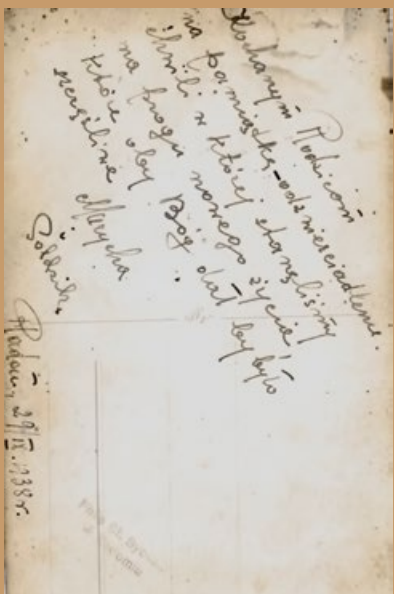 Kochanym Rodzicom
na pamiątkę odzwierciadlenie
chwili w której stanęliśmy
na progu nowego życia
które oby Bóg dał by było
szczęśliwe Marycha
Radom, 29/IX.1938r.